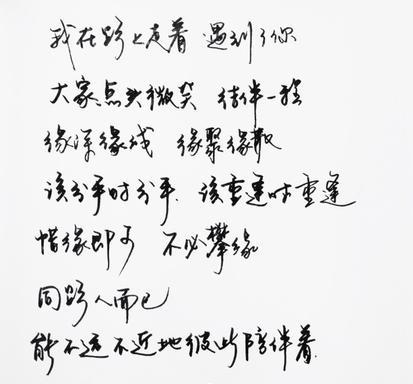 我在路上走着 遇到了你
大家点头微笑 结伴一程
缘深缘浅 缘聚缘散
该分手时分手 该重逢时重逢
惜缘即可 不必攀缘
同路人而已
能不远不近地彼此陪伴着